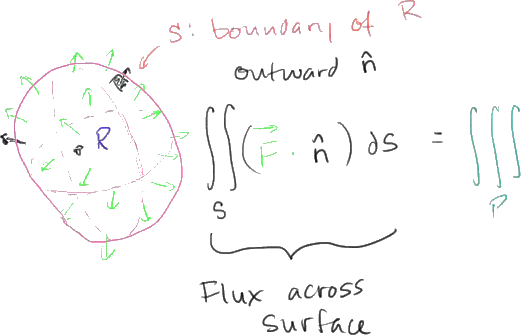 S: boundary of R
outward n̂
R
∬ (F⃗ · n̂) dS = ∭
S
R
Flux across
surface